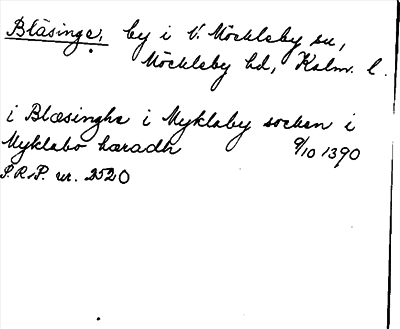 Bläsinge, by i V. Möckleby sn,
Möckleby hd, Kalm. l.
i Blæsinghe i Myklaby socken i
Myklabo haradh 9/10 1390
S.R.P. nr. 2520